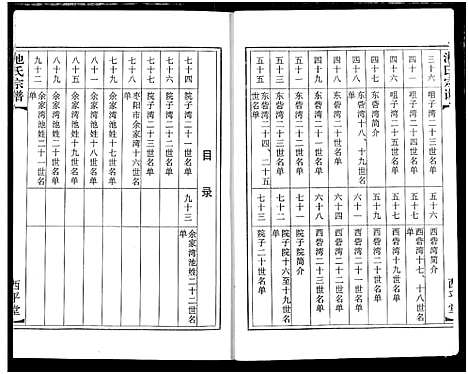 池氏宗谱
三十六 咀子湾二十一世名单
四十 咀子湾二十二世名单
四十四 咀子湾二十三世名单
四十六 东砦湾简介
四十七 东砦湾十八、十九世名单
四十八 东砦湾二十世名单
东砦湾二十一世名单
五十一 东砦湾二十二世名单
五十三 东砦湾二十三世名单
五十五 东砦湾二十四、二十五世名单
五十六 西砦湾简介
五十七 西砦湾十七、十八世名单
五十九 西砦湾十九世名单
五十九 西砦湾二十世名单
西砦湾二十一世名单
六十四 西砦湾二十二世名单
六十八 西砦湾二十三世名单
七十一 院子简介
七十二 院子院十六至十九世名单
七十三 院子二十世名单
西平堂
目录
七十四 院子湾二十一世名单
院子湾二十二世名单
七十七 院子湾二十三世名单
七十八 枣阳市余家湾十六世名单
余家湾池姓十七世名单
余家湾池姓十八世名单
余家湾池姓十九世名单
八十九 余家湾池姓二十世名单
九十二 余家湾池姓二十一世名单
九十三 余家湾池姓二十二世名单
池氏宗谱
西平堂